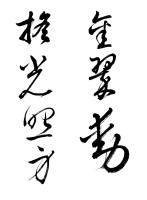 金翠動
搖光照身